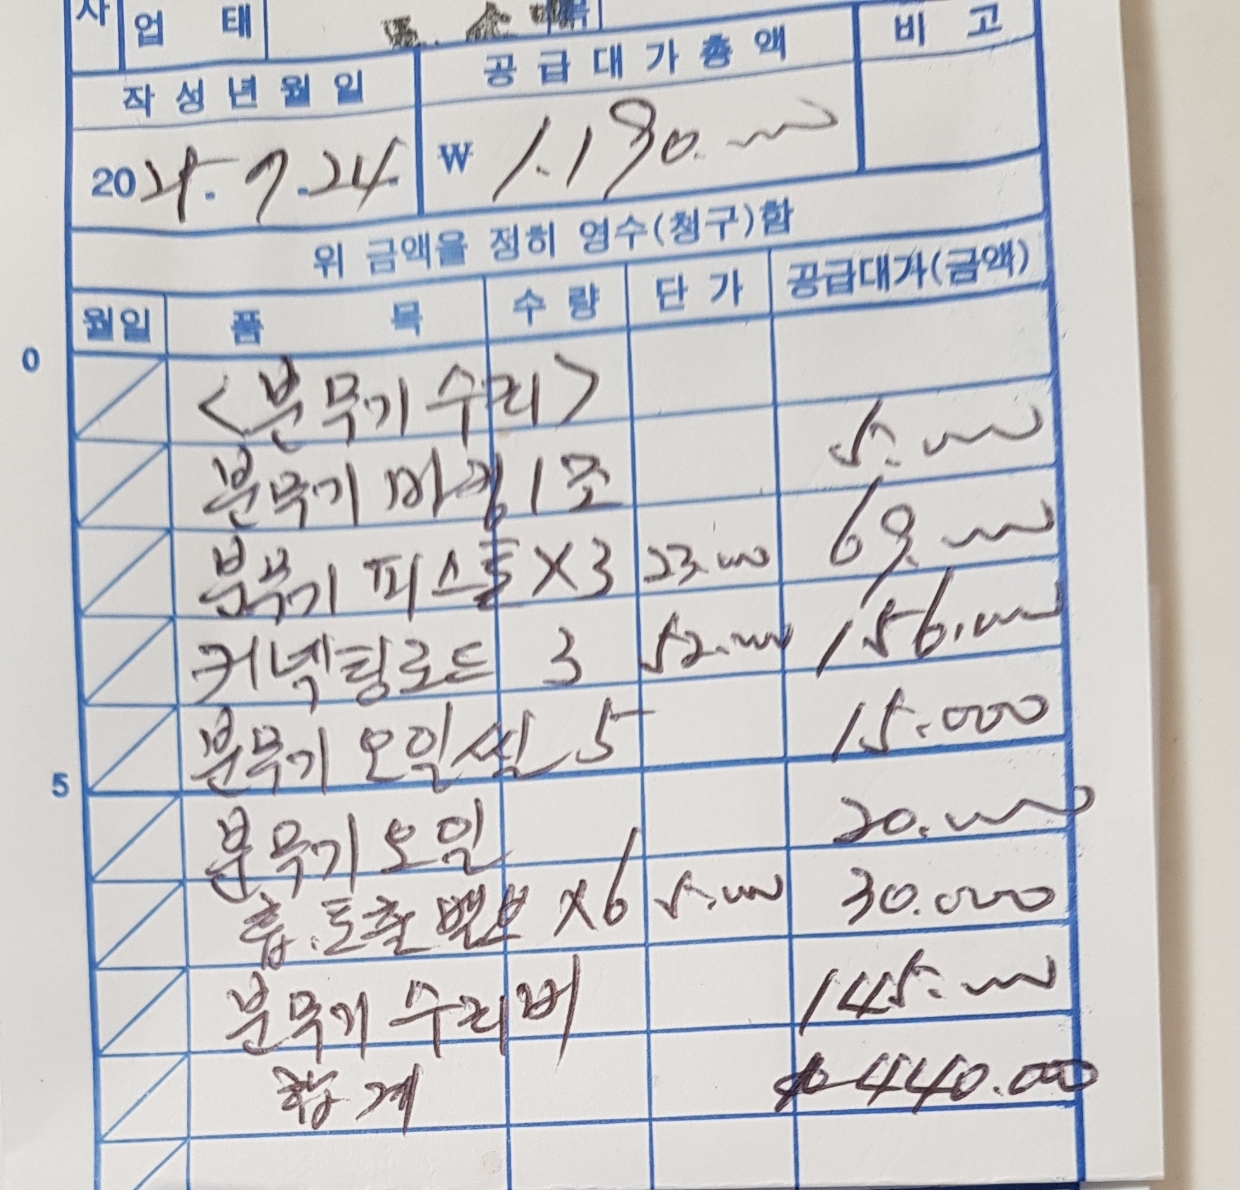 사
업 태
작성년월일 공급대가총액 비 고
2024.7.24. ₩ 1.190.000
위 금액을 정히 영수(청구)함
월일 품 목 수 량 단 가 공급대가(금액)
<분무기 수리>
분무기 바킹 1조 5.000
분무기 피스톤 X3 23.000 69.000
커넥팅로드 3 52.000 156.000
분무기 오일씰 5 15.000
5
분무기 오일 20.000
흡.토출 밸브 X6 5.000 30.000
분무기 수리비 145.000
합계 440.000